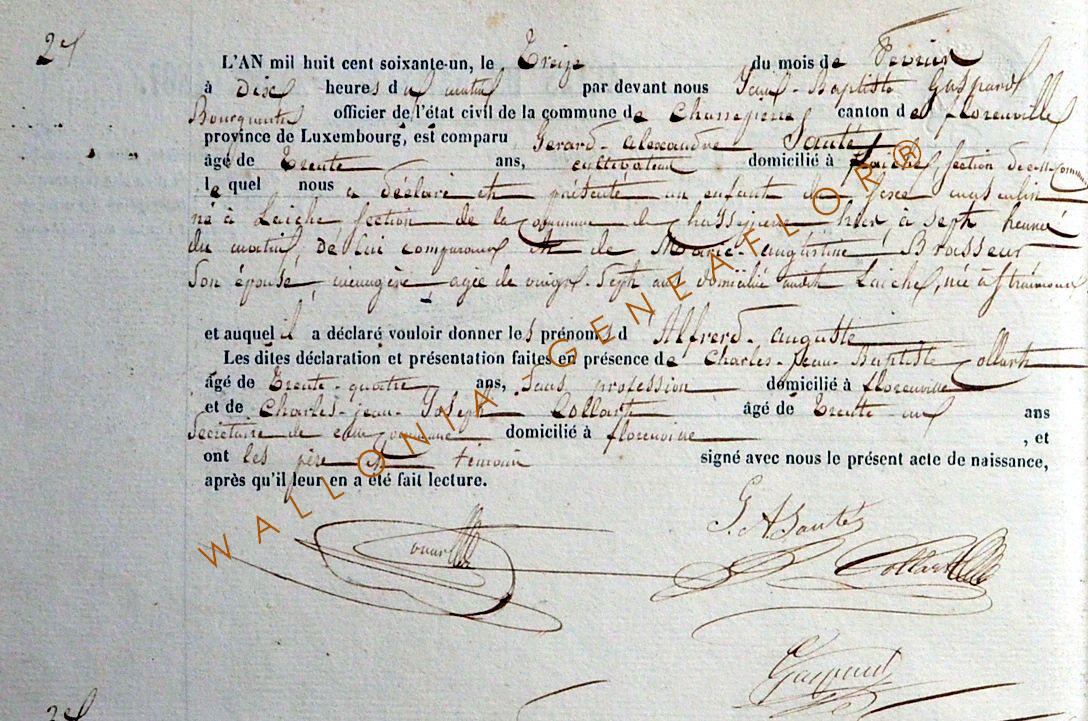 2e
L'AN mil huit cent soixante-un, le Treize du mois de Fevrier
à Dix heures du matin par devant nous Jean-Baptiste Gaspard
officier de l'état civil de la commune de Chassepierre canton de florenville
province de Luxembourg, est comparu Gerard-alexandre Santé
âgé de Trente ans, cultivateur domicilié à Laiche, section de cette Commune
le quel nous a déclaré et présenté un enfant de sexe masculin
né à Laiche section de la Commune de Chassepierre hier, à sept heures
du matin, de lui comparant et de Marie-augustine Brasseur
son épouse, menagère agée de vingt-sept ans domiciliée audit Laiche, née à
et auquel il a déclaré vouloir donner les prénoms d Alfrerd-auguste
Les dites déclaration et présentation faites en présence de Charles-Jean-Baptiste Collart
âgé de Trente-quatre ans, Sans profession domicilié à florenville
et de Charles-jean-Joseph Collart âgé de Trente-un ans
Secrétaire de cette commune domicilié à florenville , et
ont les père et témoin signé avec nous le présent acte de naissance,
après qu'il leur en a été fait lecture.
G. A Santé
Collart
Gaspard
WALLONIA-GENEAFLOR®